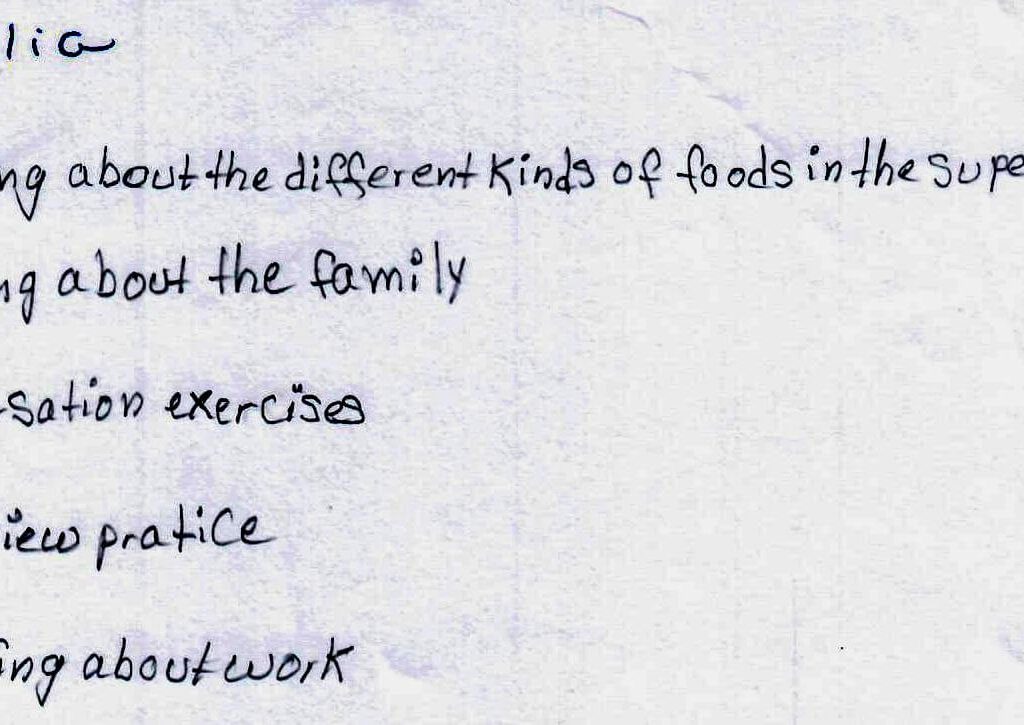 lia
ng about the different kinds of foods in the supe
ng about the family
sation exercises
iew pratice
ing about work